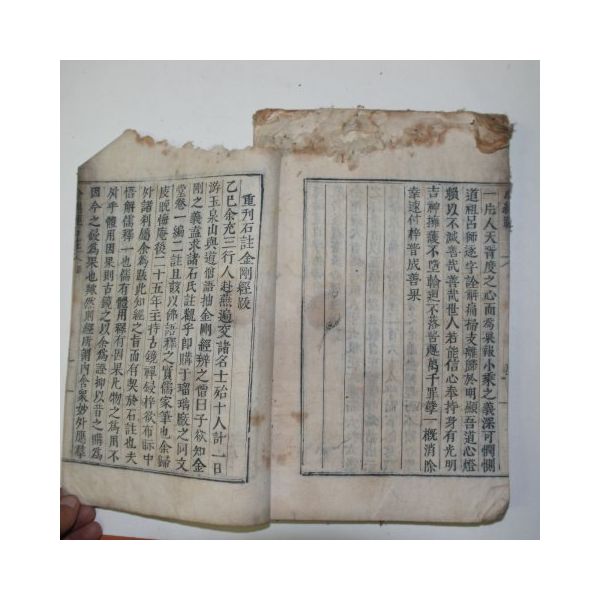 一片人天普度之心而爲果報小乘之義深可憫惻
道祖呂師逐字詮解痛掃支離歸於明顯吾道心燈
賴以不滅善哉善哉世人若能信心奉持身有光明
吉神擁護不墮輪迴不落苦趣萬千罪孽概消除
幸速付梓普成善果
重刊石註金剛經跋
乙巳余充三行人赴燕遍交諸名士殆十人計一日
游玉泉山與道僧語抽金剛經辨之僧曰子欲知金
剛之義盍求諸石氏註觀乎卽購于瑠璃廠之同文
堂卷一編二註且該以佛語釋之實儒家筆也余歸
庚晩傭菴後二十五年主持古鏡禪錢梓欲布䀡中
外諸刹屬余爲跋此知經之旨而有契於石註也夫
悟解儒釋一也儒有體用釋有因果化物之爲用不
外乎體用因果則古鏡之以余爲證抑以昔之購爲
因今之跋爲果也歟然則經所謂內含衆妙外應羣